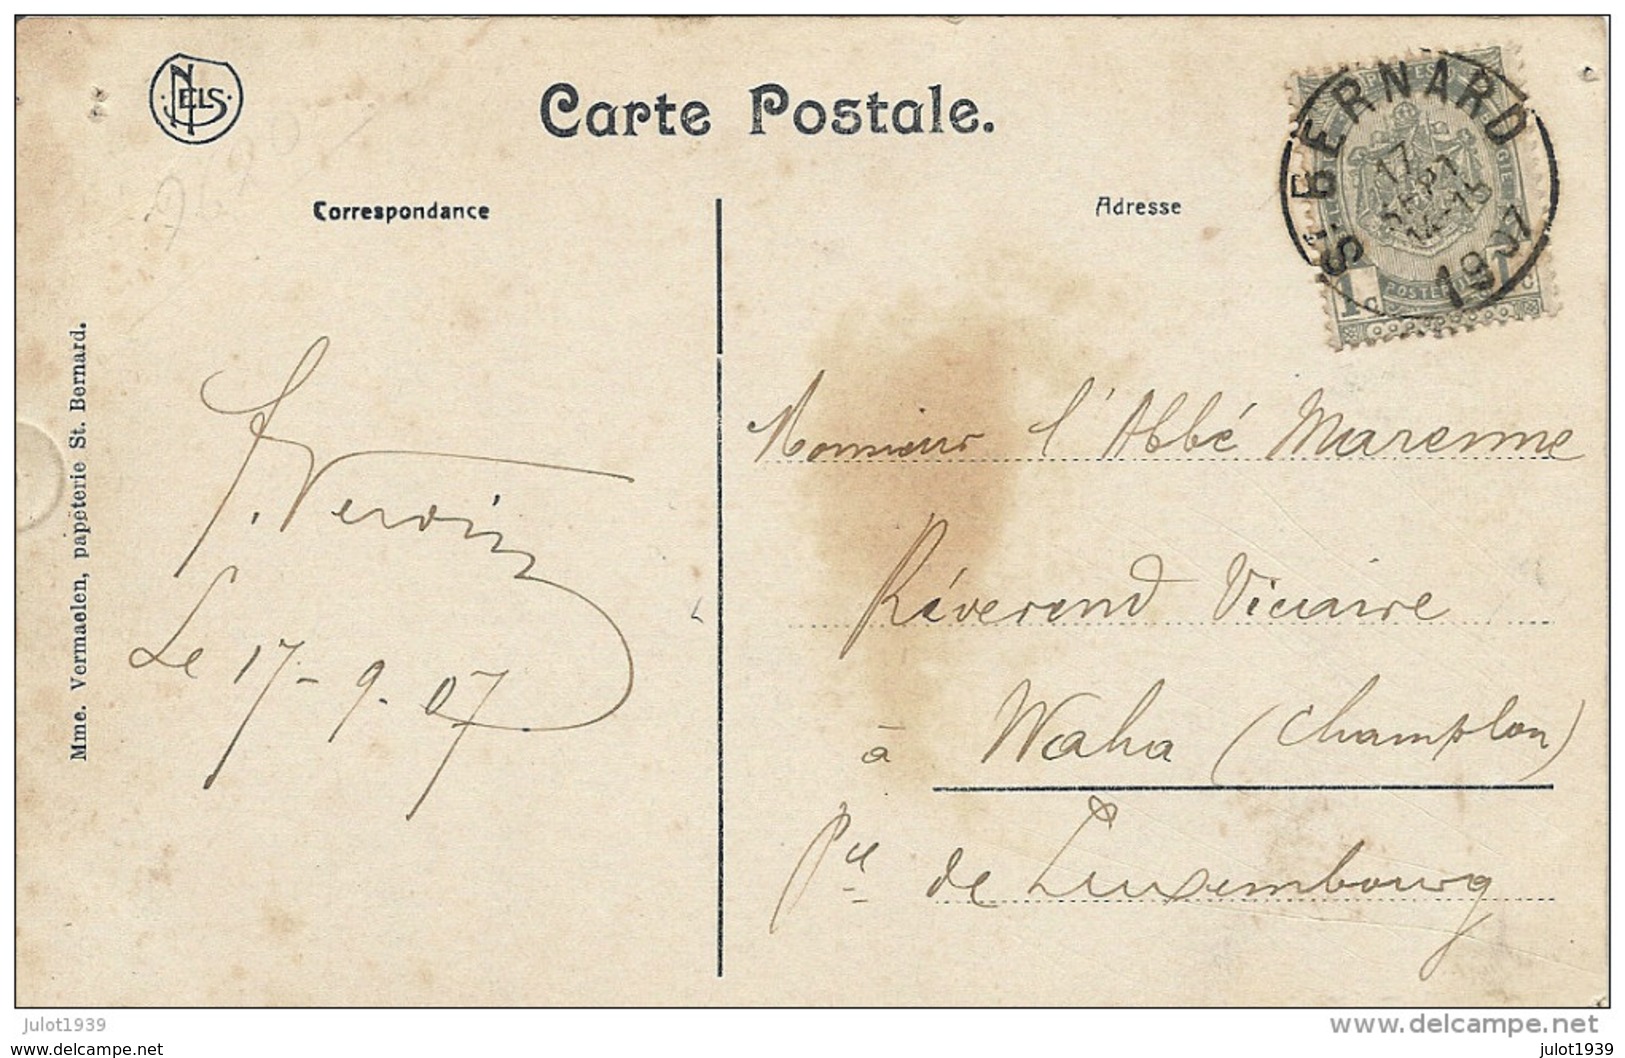 NELS
Carte Postale.
Correspondance
Adresse
ST. BERNARD
17
SEPT
14-15
1907
1 c
1 c
Mme. Vermaelen, papeterie St. Bernard.
Le 17-9-07
Monsieur l'Abbé Marenne
Révérend Vicaire
à Waha (Champlon)
Pce de Luxembourg
julot1939
www.delcampe.net
www.delcampe.net
julot1939